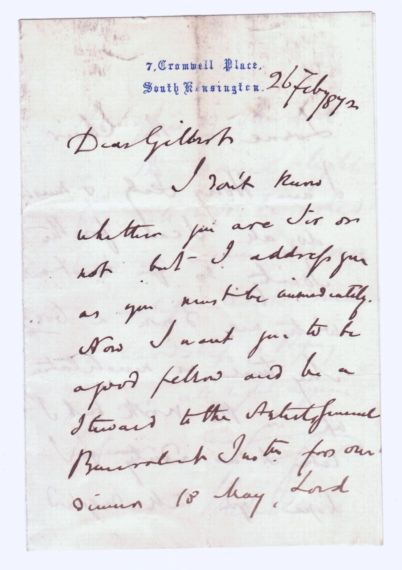 7, Cromwell Place,
South Kensington.
26 Feby 1872
Dear Gilbert
I don't know
whether you are Sir or
not but I address you
as you must be immediately.
Now I want you to be
a good fellow and be a
Steward to the Artists General
Benevolent Instn for our
dinner 18 May, Lord